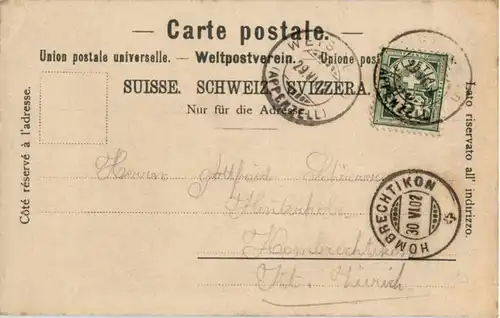 Carte postale.
Union postale universelle. — Weltpostverein. — Unione postale
SUISSE. SCHWEIZ. SVIZZERA.
Nur für die Adresse.
Côté réservé à l'adresse.
Lato riservato all' indirizzo.
(APPENZELL)
29 VI
APPENZELL
HOMBRECHTIKON
30 VI 02
Herrn Gottfried
Hombrechtikon
Kt. Zürich